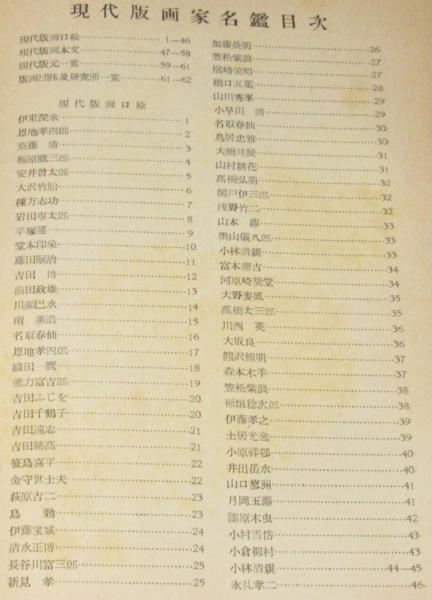 現代版画家名鑑目次
現代版画口絵 1—46
現代版画本文 47—58
現代版元一覧 59—61
版画団体及研究所一覧 61—62
現代版画口絵
伊東深水 1
恩地孝四郎 2
斎藤清 3
梅原龍三郎 4
安井曾太郎 5
大沢竹胎 6
棟方志功 7
岩田専太郎 8
平塚運一 9
堂本印象 10
藤田嗣治 11
吉田博 12
前田政雄 13
川瀬巴水 14
南薫造 15
名取春仙 16
恩地孝四郎 17
織田一麿 18
徳力富吉郎 19
吉田ふじを 20
吉田千鶴子 20
吉田遠志 21
吉田穂高 21
笹島喜平 22
金守世士夫 22
萩原吉二 23
島勉 23
伊藤宝城 24
清水正博 24
長谷川富三郎 25
新見孝 25
加藤晃明 26
笠松紫浪 27
楢崎栄昭 27
橋口五葉 28
山川秀峯 29
小早川清 29
名取春仙 30
鳥居忠雅 30
大橋月皎 31
山村耕花 31
高橋弘明 32
関戸伊三郎 32
浅野竹二 32
山本鼎 33
奥山儀八郎 33
小林清親 33
富本憲吉 34
河原崎奨堂 34
大野麦風 35
高橋太三郎 35
川西英 36
大坂良一 36
熊沢観明 37
森本木羊 37
笠松紫浪 38
稲垣稔次郎 38
伊藤孝之 39
土居光逸 39
小原祥邨 40
井出岳水 40
山口蓼洲 41
月岡玉瀞 41
漆原木虫 42
小村雪岱 43
小倉柳村 43
小林清親 44—45
永礼孝二 46